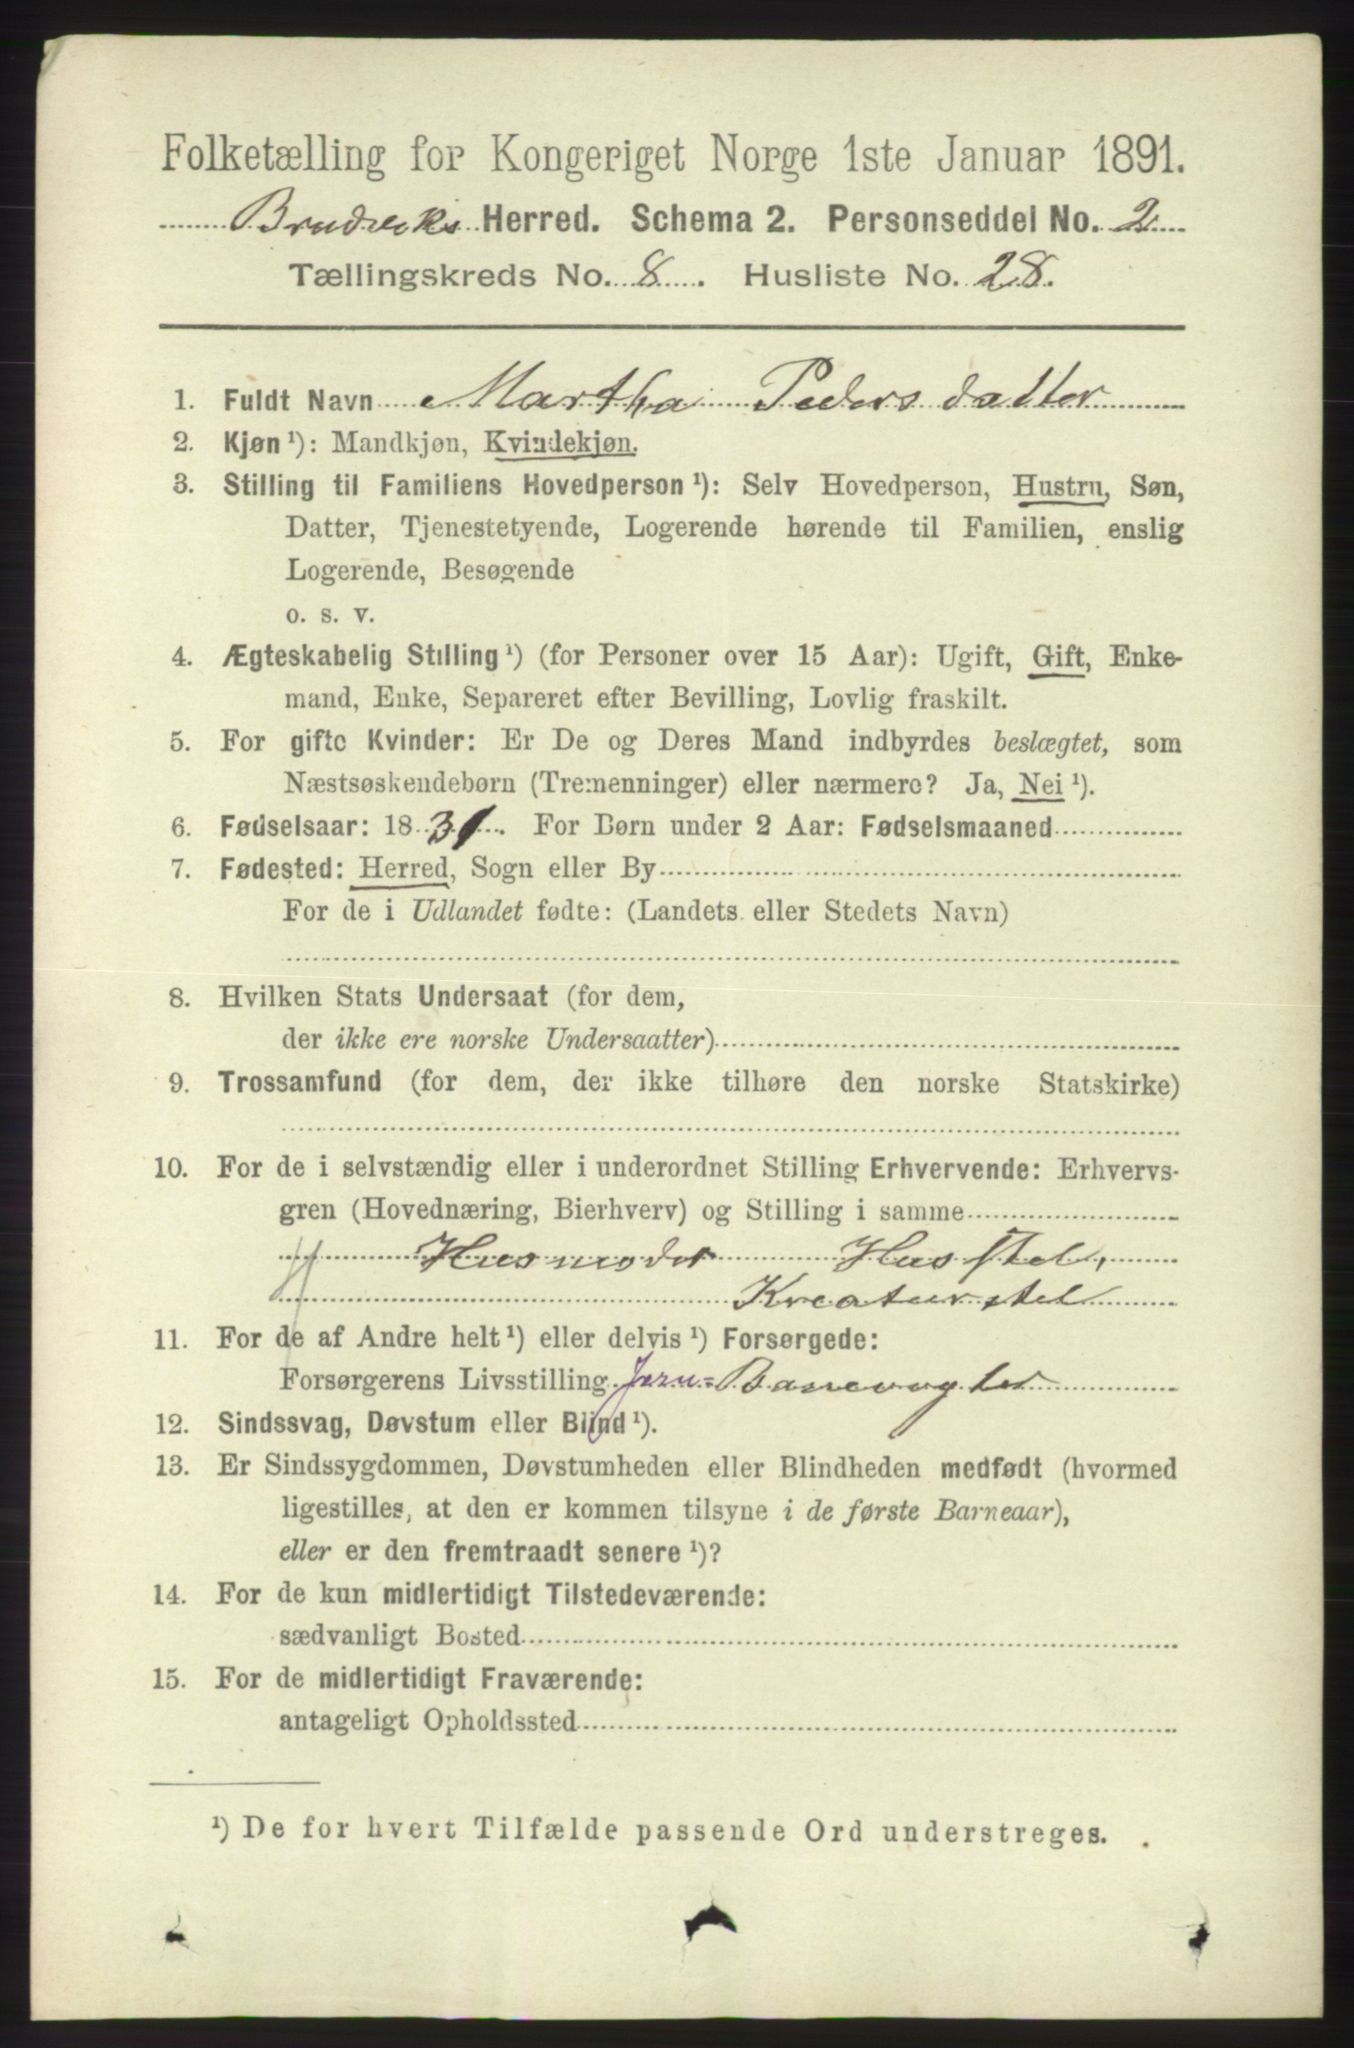 Folketælling for Kongeriget Norge 1ste Januar 1891.
Herred. Schema 2. Personseddel No. 2
Tællingskreds No. 8. Husliste No. 28.
1. Fuldt Navn Martha Pedersdatter
2. Kjøn ¹): Mandkjøn, Kvindekjøn.
3. Stilling til Familiens Hovedperson ¹): Selv Hovedperson, Hustru, Søn,
Datter, Tjenestetyende, Logerende hørende til Familien, enslig
Logerende, Besøgende
o. s. v.
4. Ægteskabelig Stilling ¹) (for Personer over 15 Aar): Ugift, Gift, Enke-
mand, Enke, Separeret efter Bevilling, Lovlig fraskilt.
5. For gifte Kvinder: Er De og Deres Mand indbyrdes beslægtet, som
Næstsøskendebørn (Tremenninger) eller nærmere? Ja, Nei ¹).
6. Fødselsaar: 1831. For Børn under 2 Aar: Fødselsmaaned
7. Fødested: Herred, Sogn eller By
For de i Udlandet fødte: (Landets eller Stedets Navn)
8. Hvilken Stats Undersaat (for dem,
der ikke ere norske Undersaatter)
9. Trossamfund (for dem, der ikke tilhøre den norske Statskirke)
10. For de i selvstændig eller i underordnet Stilling Erhvervende: Erhvervs-
gren (Hovednæring, Bierhverv) og Stilling i samme
Husmoder Husstel,
Kreaturstel
11. For de af Andre helt ¹) eller delvis ¹) Forsørgede:
Forsørgerens Livsstilling Jern=Banevogter
12. Sindssvag, Døvstum eller Blind ¹).
13. Er Sindssygdommen, Døvstumheden eller Blindheden medfødt (hvormed
ligestilles, at den er kommen tilsyne i de første Barneaar),
eller er den fremtraadt senere ¹)?
14. For de kun midlertidigt Tilstedeværende:
sædvanligt Bosted
15. For de midlertidigt Fraværende:
antageligt Opholdssted
¹) De for hvert Tilfælde passende Ord understreges.